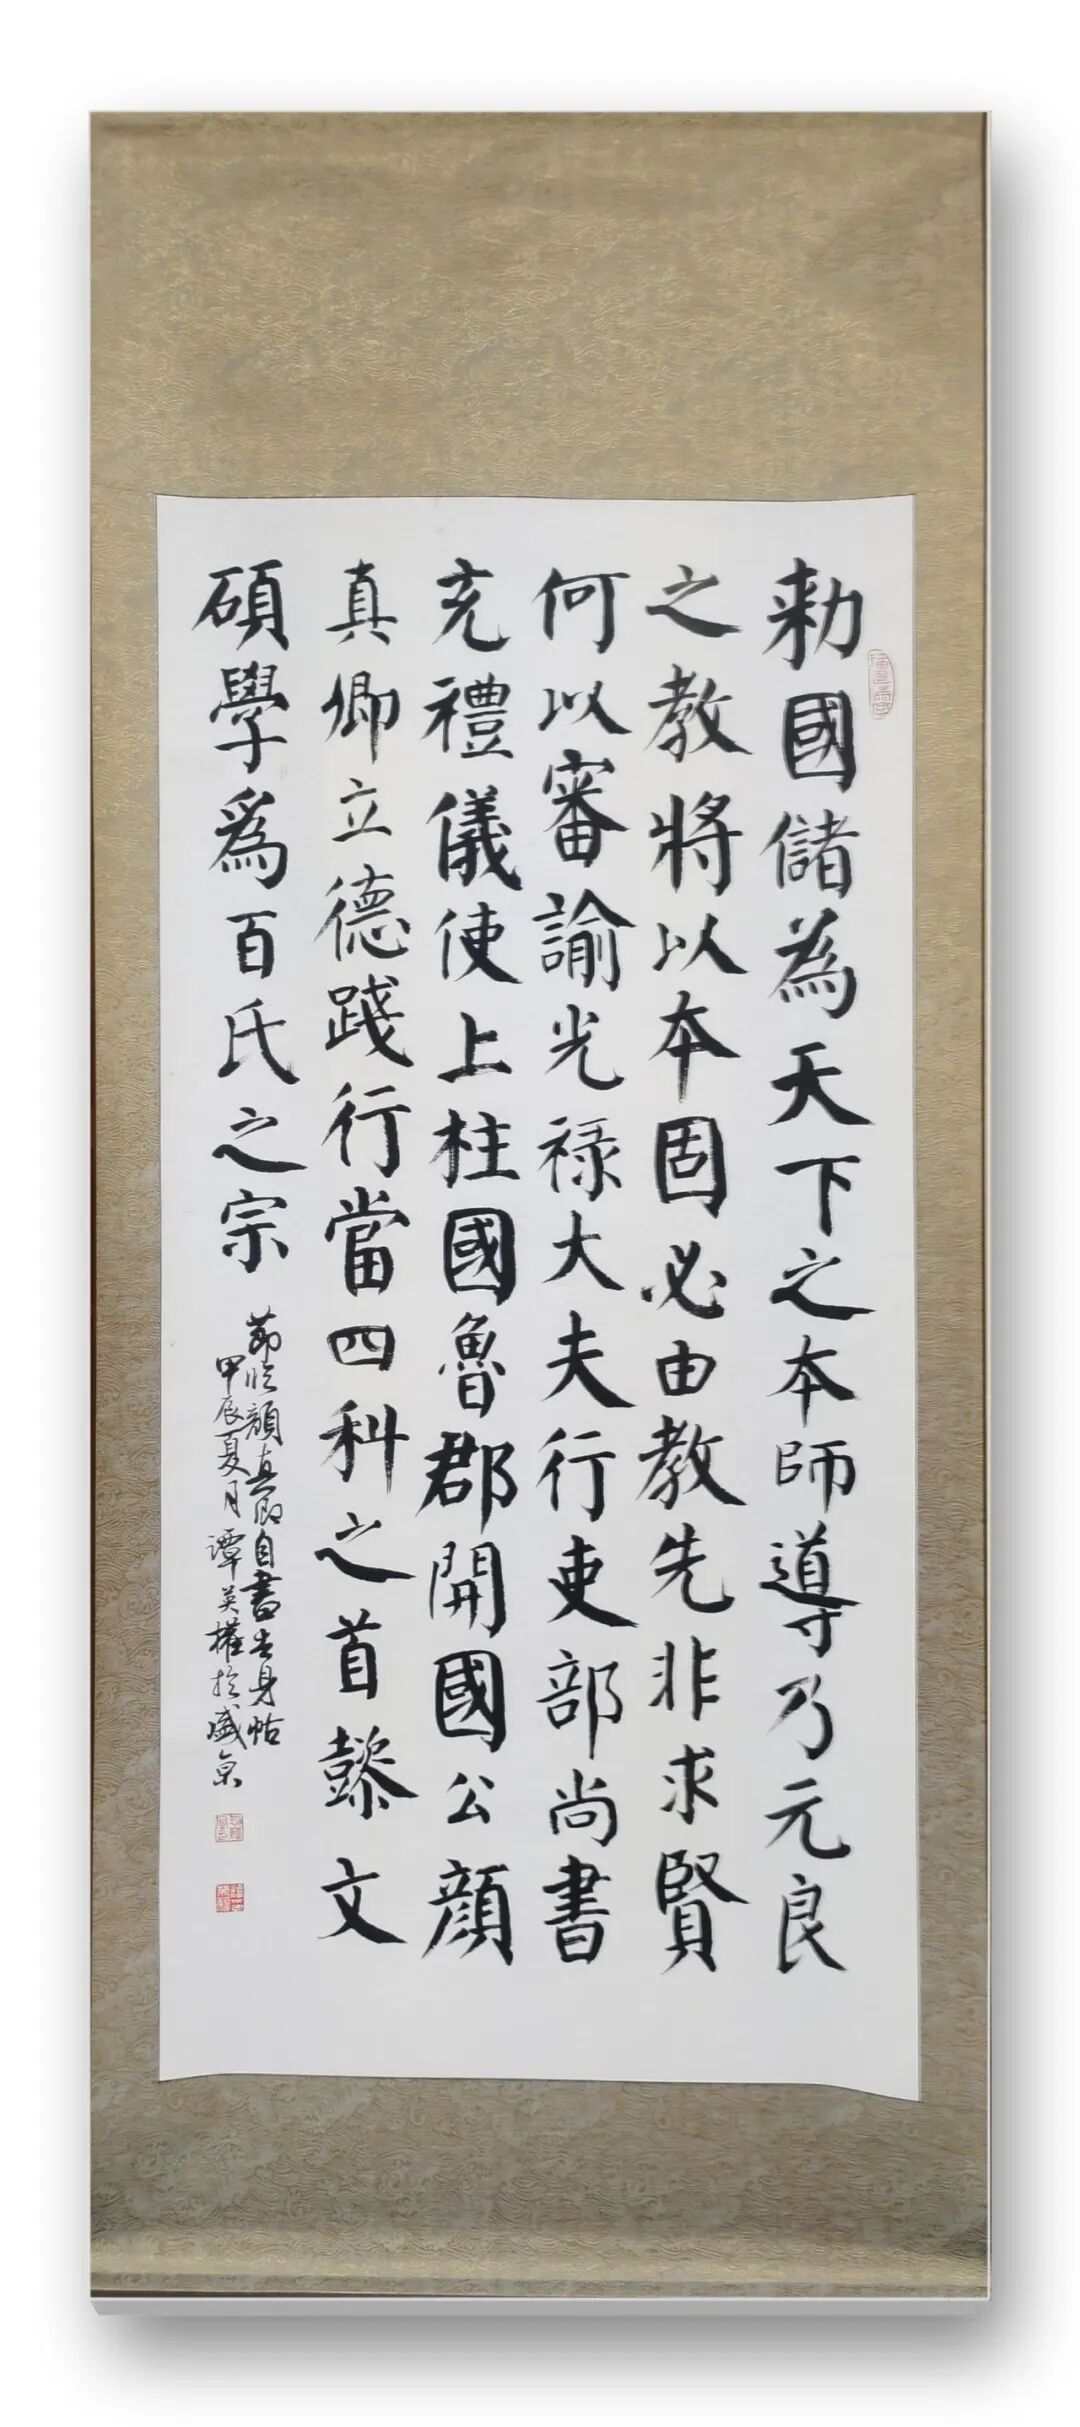 勅國儲為天下之本師導乃元良
之教將以本固必由教先非求賢
何以審諭光禄大夫行吏部尚書
充禮儀使上柱國魯郡開國公顏
真卿立德踐行當四科之首懿文
碩學為百氏之宗
節臨顏真卿自書告身帖
甲辰夏月譚英權於盛京